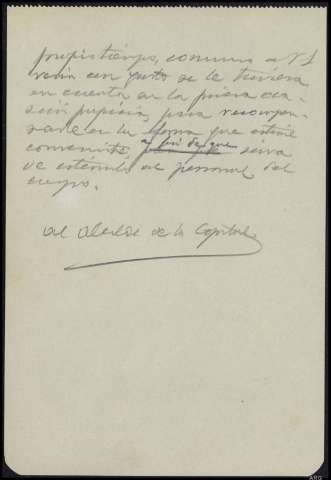 propio tiempo, comunico a V. S.
vería con gusto se le tuviera
en cuenta en la primera oca-
sión propicia, para recompen-
sarle en la forma que estime
conveniente a fin de que sirva
de estímulo al personal del
cuerpo.
Al Alcalde de la Capital